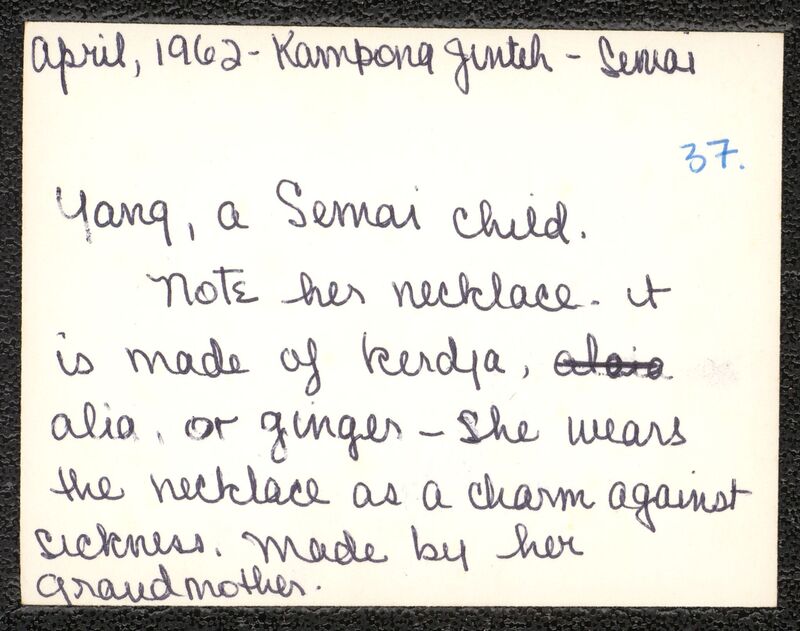 April, 1962 - Kampong Jinteh - Semai
37.
Yang, a Semai child.
Note her necklace. it
is made of kerdja,
alia, or ginger - she wears
the necklace as a charm against
sickness. Made by her
grandmother.